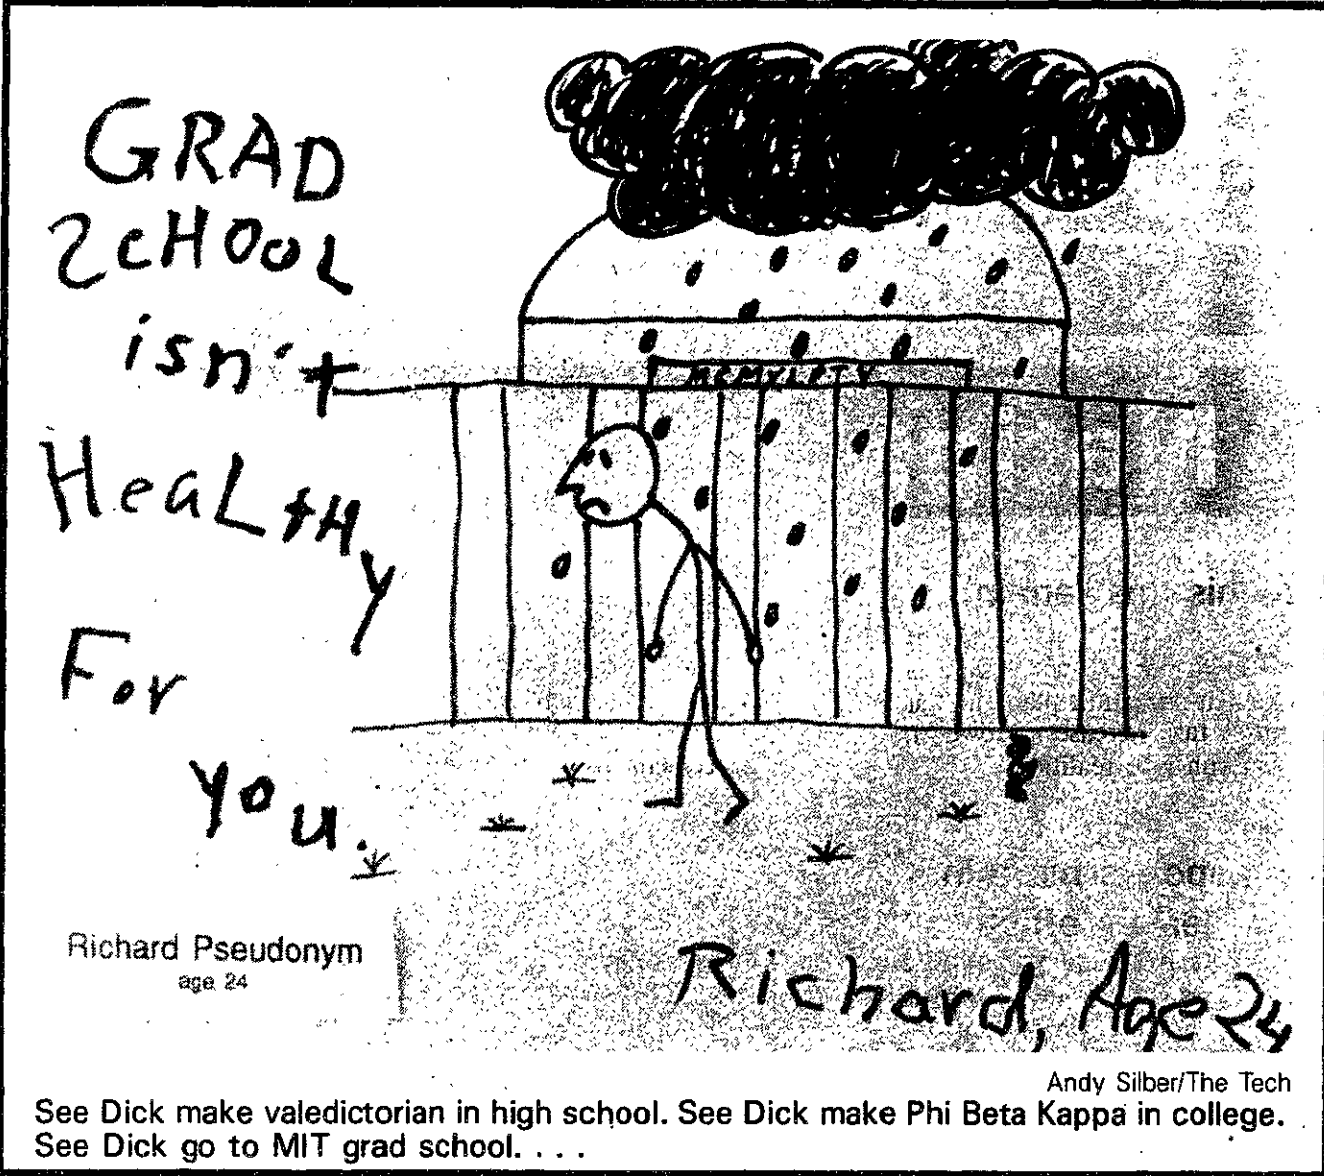 GRAD
SCHOOL
isn't
HeaLtHy
For
you.
MCMVLPTV
Richard Pseudonym
age 24
Richard, Age 24
Andy Silber/The Tech
See Dick make valedictorian in high school. See Dick make Phi Beta Kappa in college.
See Dick go to MIT grad school. . . .